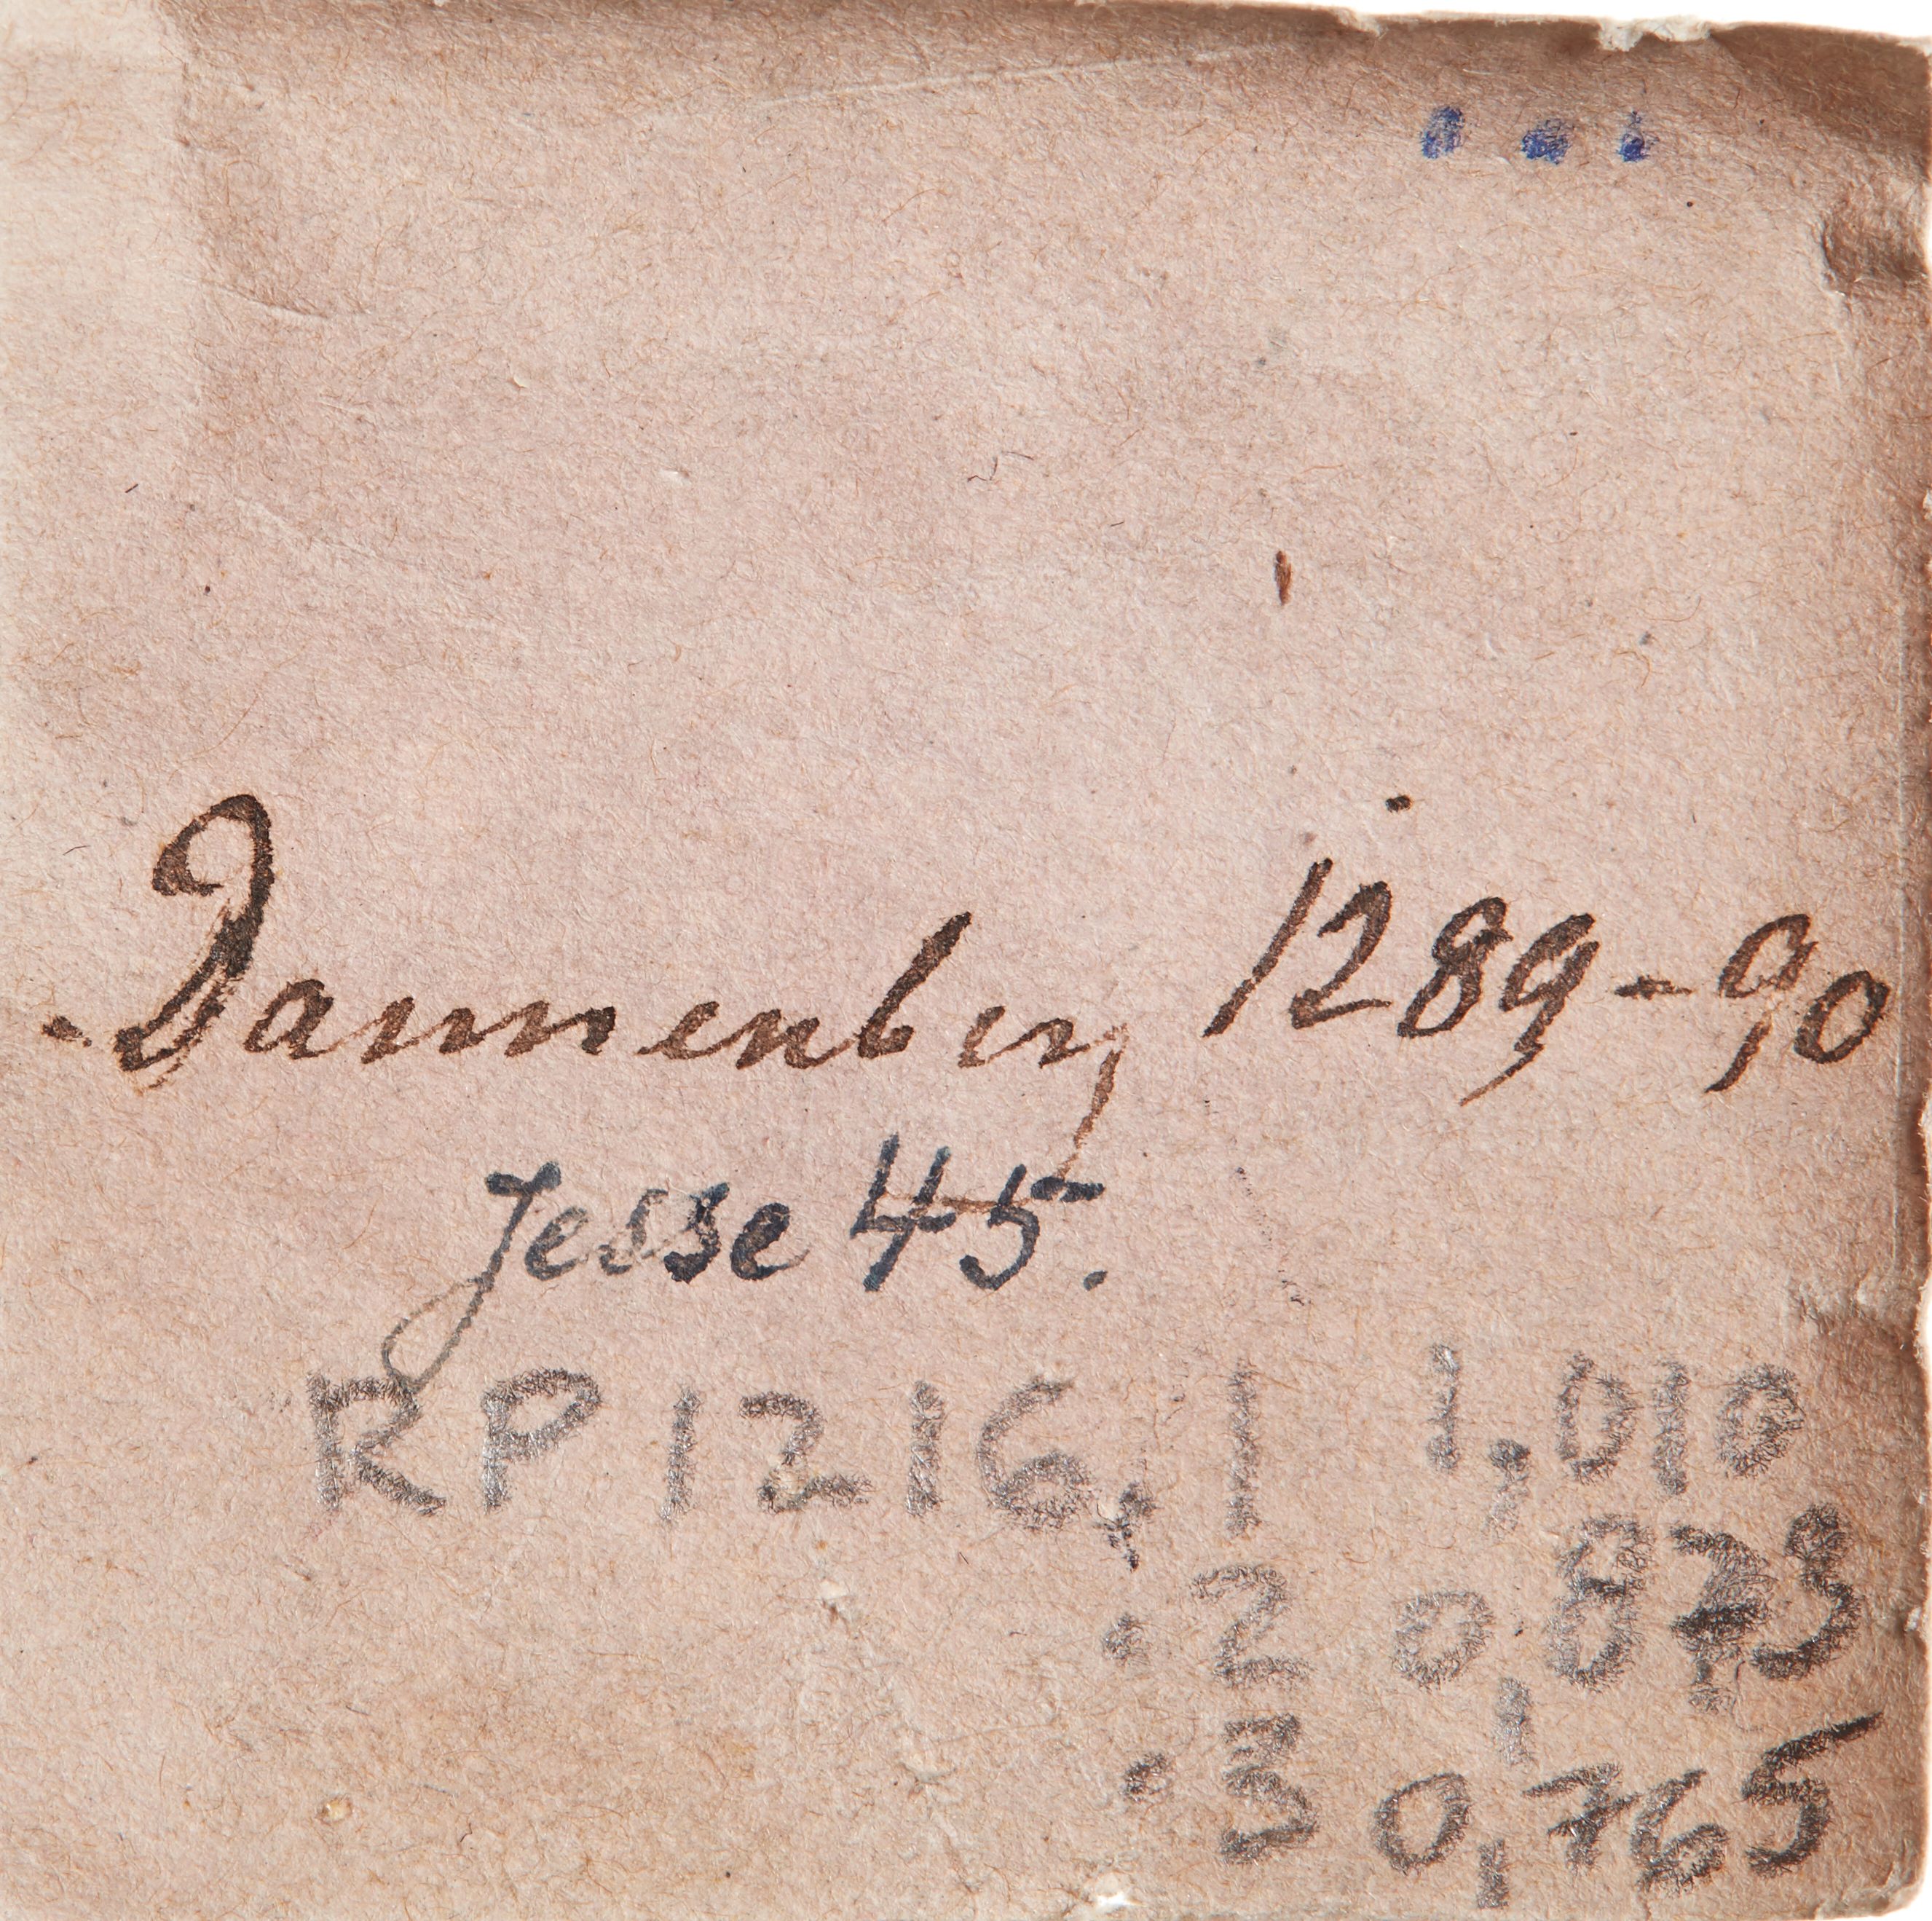 Dannenberg 1289-90
Jesse 45.
RP 1216,1 1,010
.2 0,873
.3 0,765